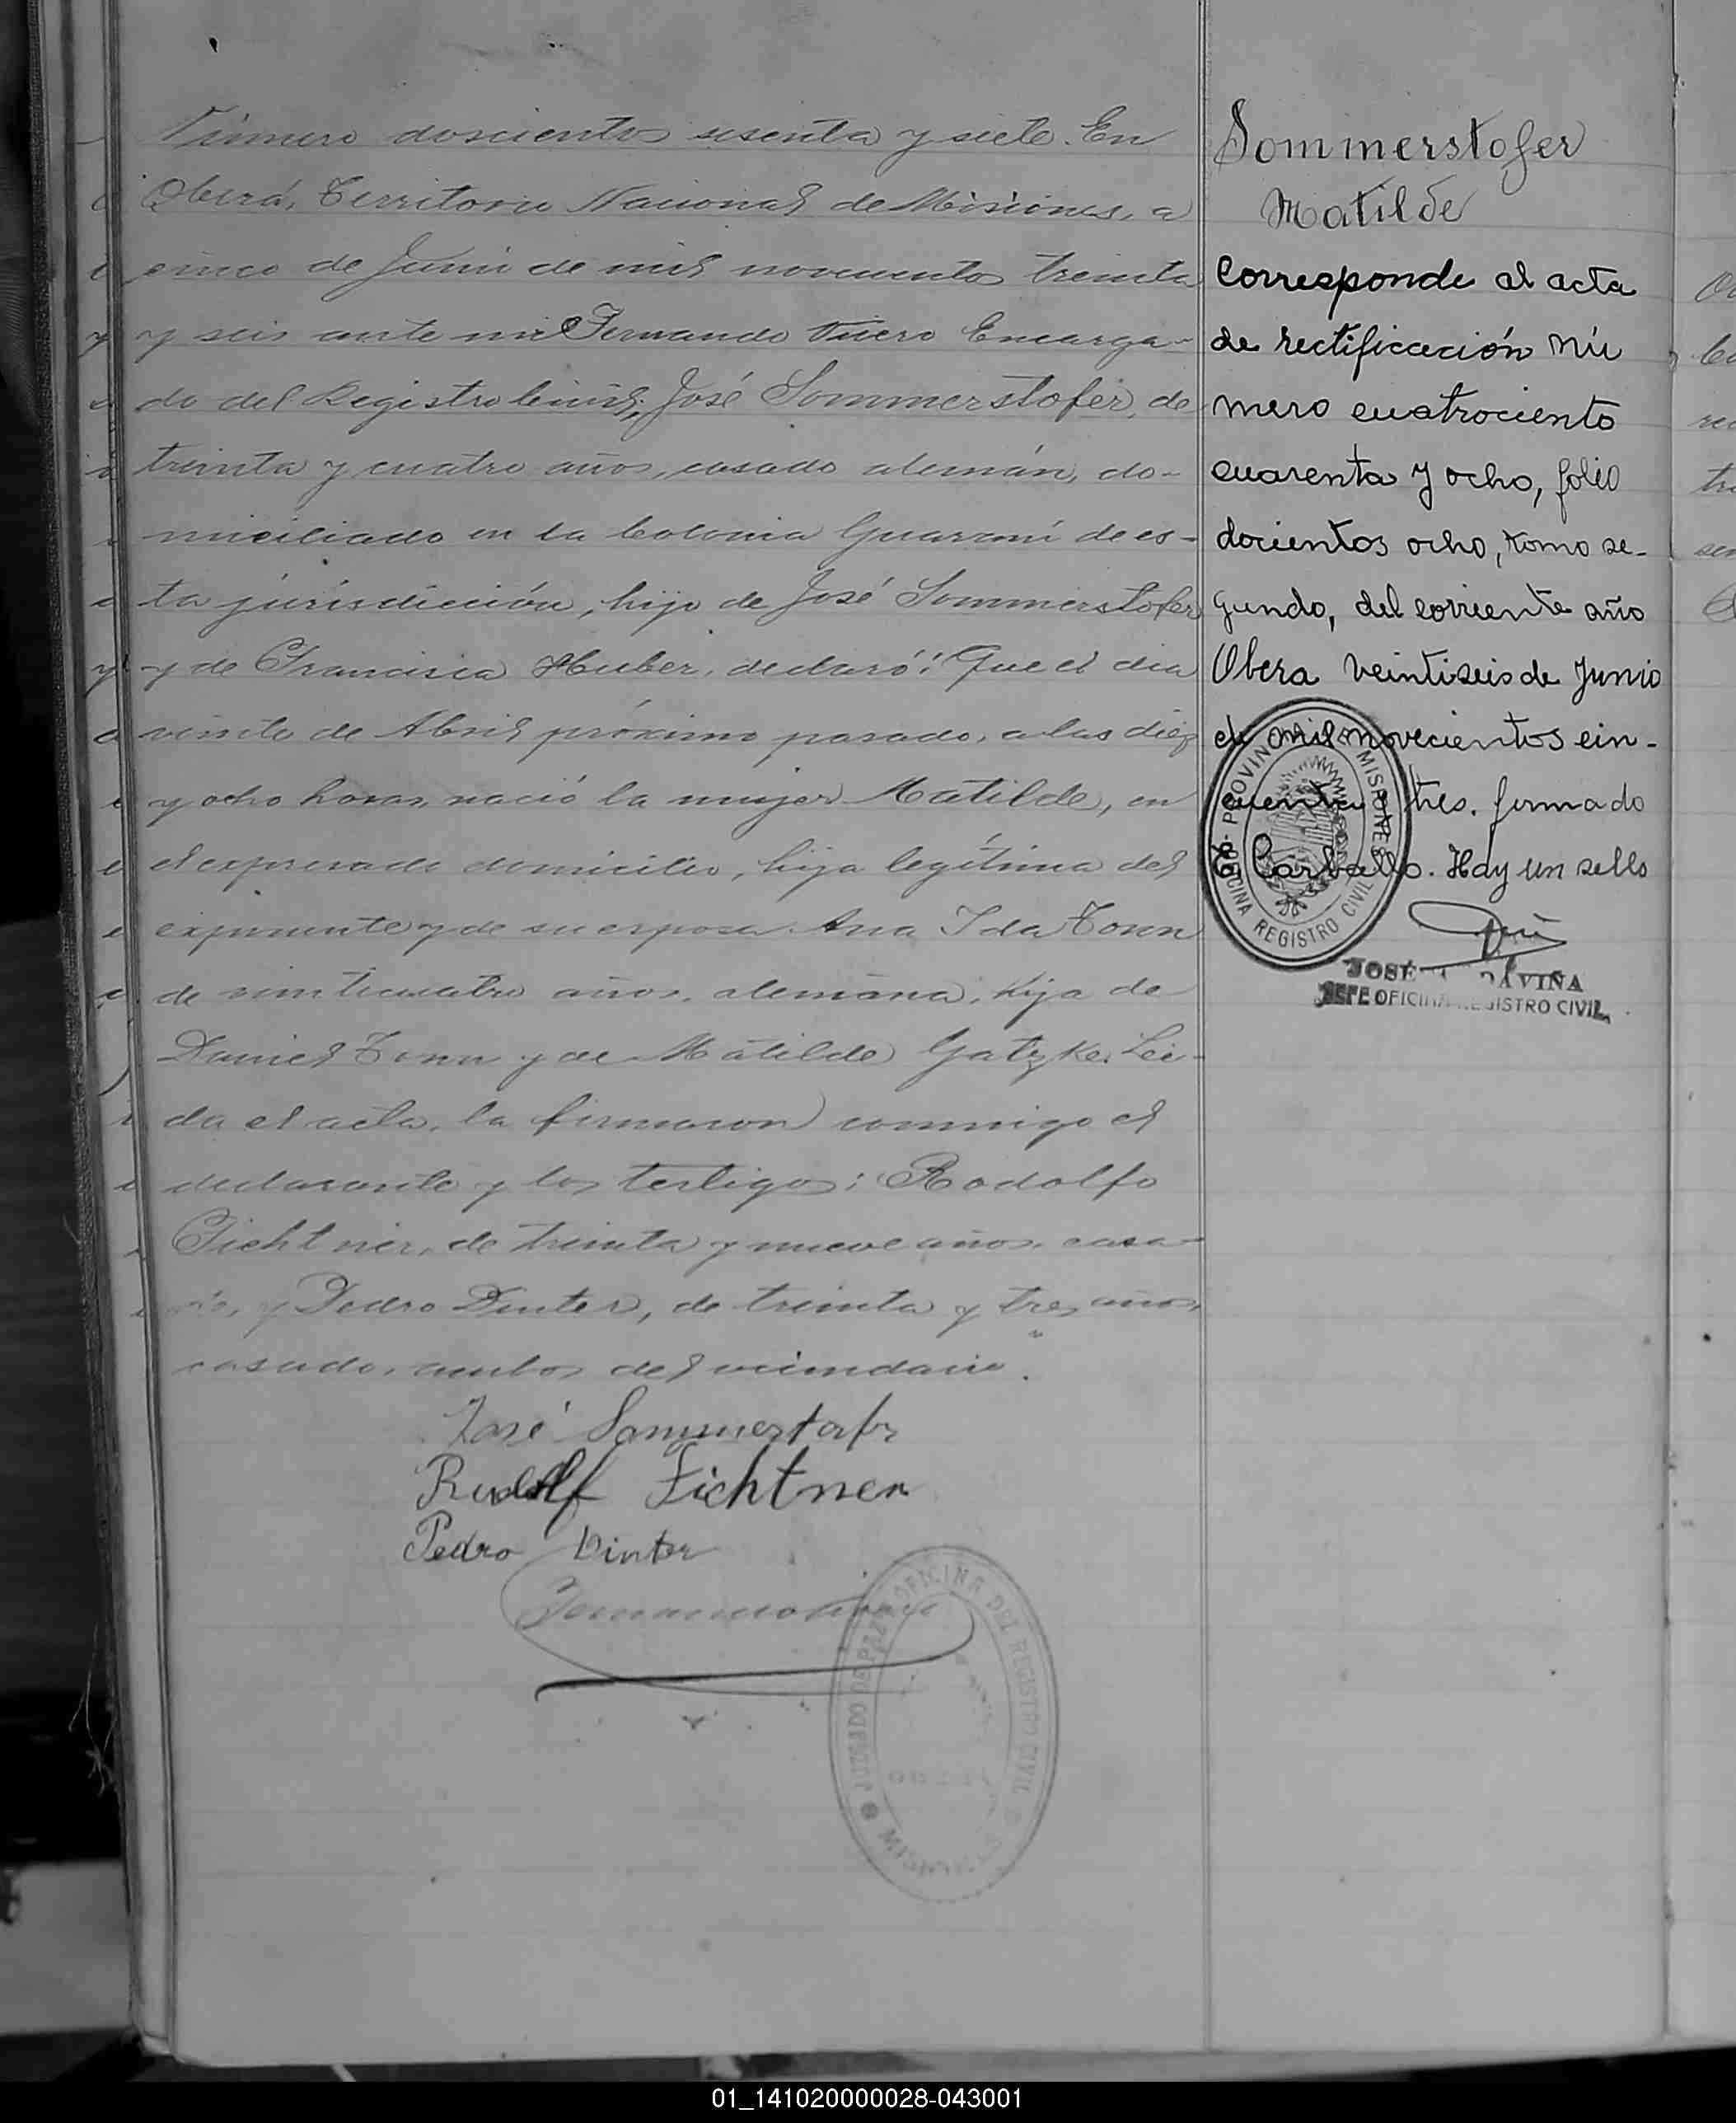 Número doscientos sesenta y siete. En
Oberá, Territorio Nacional de Misiones, a
cinco de Junio de mil novecientos treinta
y seis ante mi Fernando Encarga-
do del Registro Civil, José Sommerstofer, de
treinta y cuatro años, casado alemán, do-
miciliado en la Colonia Guaraní de es-
ta jurisdicción, hijo de José Sommerstofer
y de Francisca Huber, declaró: Que el dia
veinte de Abril próximo pasado, a las diez
y ocho horas, nació la mujer Matilde, en
el expresado domicilio, hija legítima del
exponente y de su esposa Ana Ida Tonn
de veinticuatro años, alemana, hija de
Daniel Tonn y de Matilde Gatzke. Leí-
da el acta, la firmaron conmigo el
declarante y los testigos: Rodolfo
Fichtner, de treinta y nueve años, casa-
do, y Pedro Dinter, de treinta y tres años,
casado, ambos del vecindario.
José Sommerstofer
Rudolf Fichtner
Pedro Dinter
JUZGADO DE PAZ OFICINA DEL REGISTRO CIVIL
Sommerstofer
Matilde
Corresponde al acta
de rectificación nú
mero cuatrociento
cuarenta y ocho, folio
docientos ocho, tomo se-
gundo, del corriente año
Obera veintiseis de Junio
de mil novecientos cin-
cuenta y tres. firmado
E Carballo. Hay un sello
PROVINCIA DE MISIONES
OFICINA REGISTRO CIVIL
JOSÉ
JEFE OFICINA REGISTRO CIVIL
01_141020000028-043001